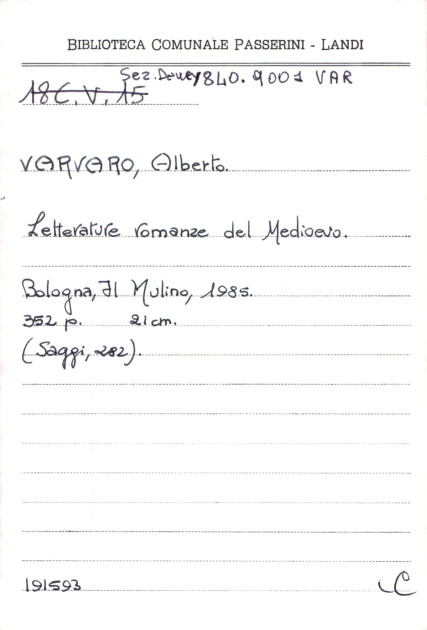 BIBLIOTECA COMUNALE PASSERINI - LANDI
Sez. Dewey 840.9001 VAR
18C.V.15
VARVARO, Alberto.
Letterature romanze del Medioevo.
Bologna, Il Mulino, 1985.
352 p. 21 cm.
(Saggi, 282).
191593